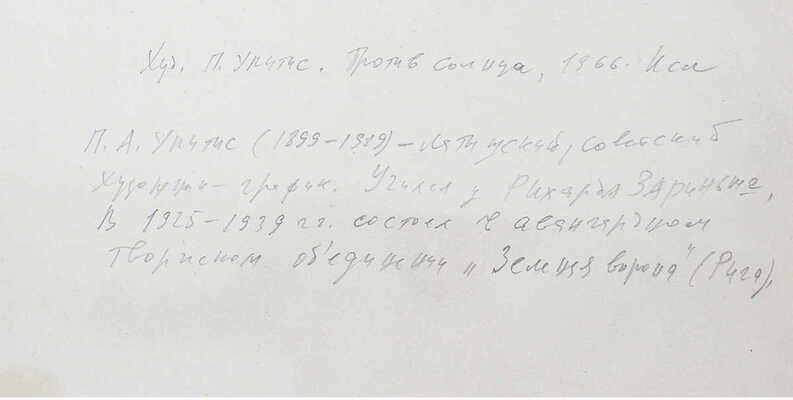 Худ. П. Упитис. Против солнца, 1966. Ксл
П. А. Упитис (1899-1989) - латышский, советский
художник-график. Учился у Рихарда Зариньша,
В 1925-1939 гг. состоял в авангардном
творческом об'единении „Зеленая ворона" (Рига),